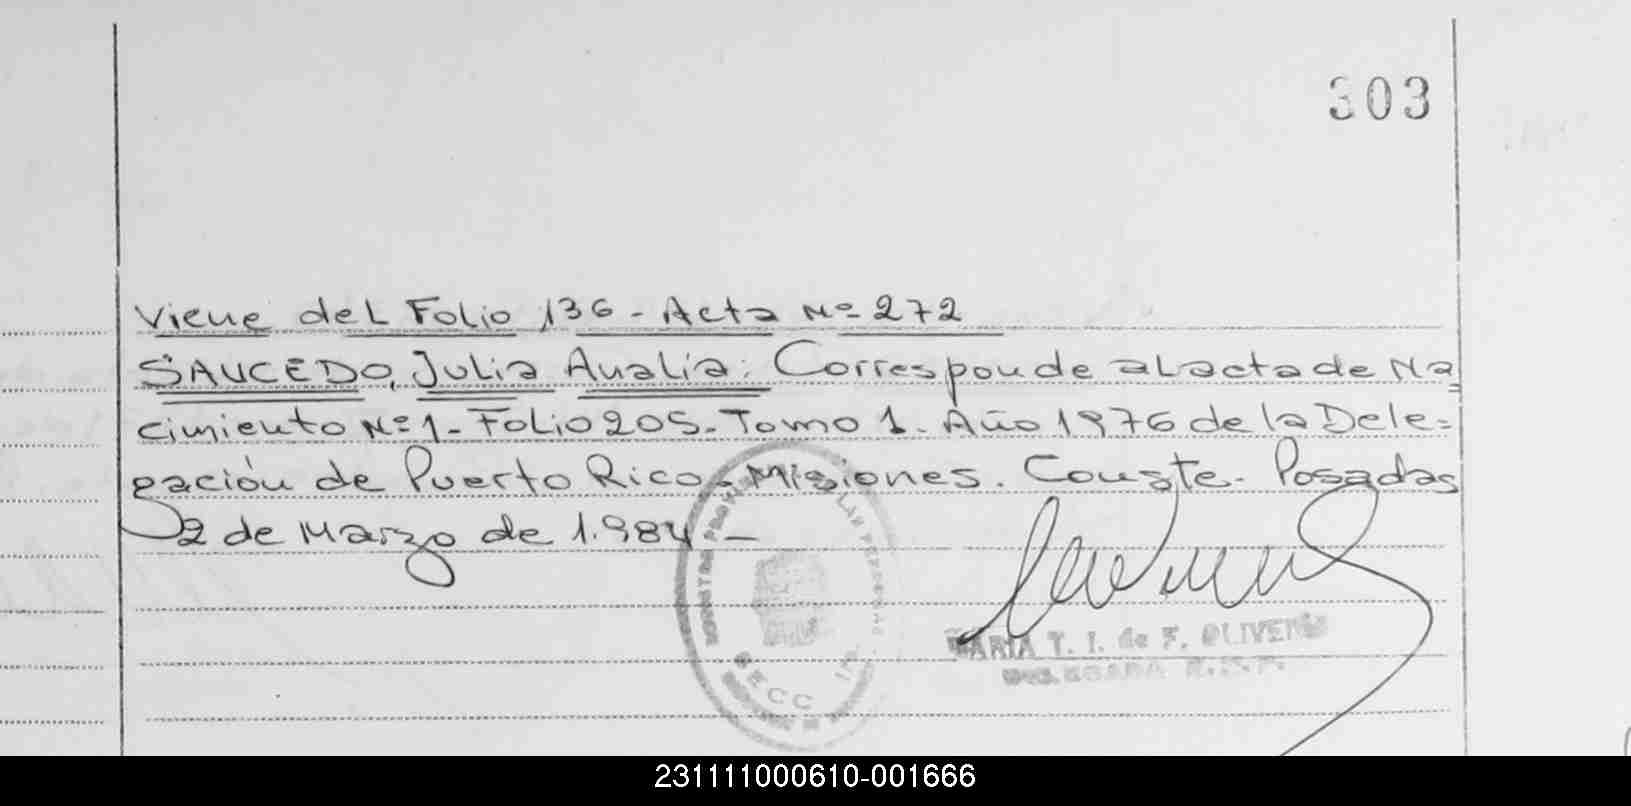 303
Viene del Folio 136 - Acta Nº 272
SAUCEDO, Julia Analia: Corresponde al acta de Na
cimiento Nº 1 - Folio 205 - Tomo 1. Año 1976 de la Dele=
gación de Puerto Rico - Misiones. Conste - Posadas
2 de Marzo de 1.984. -
MARIA T. I. de F. OLIVERA
SECC
231111000610-001666